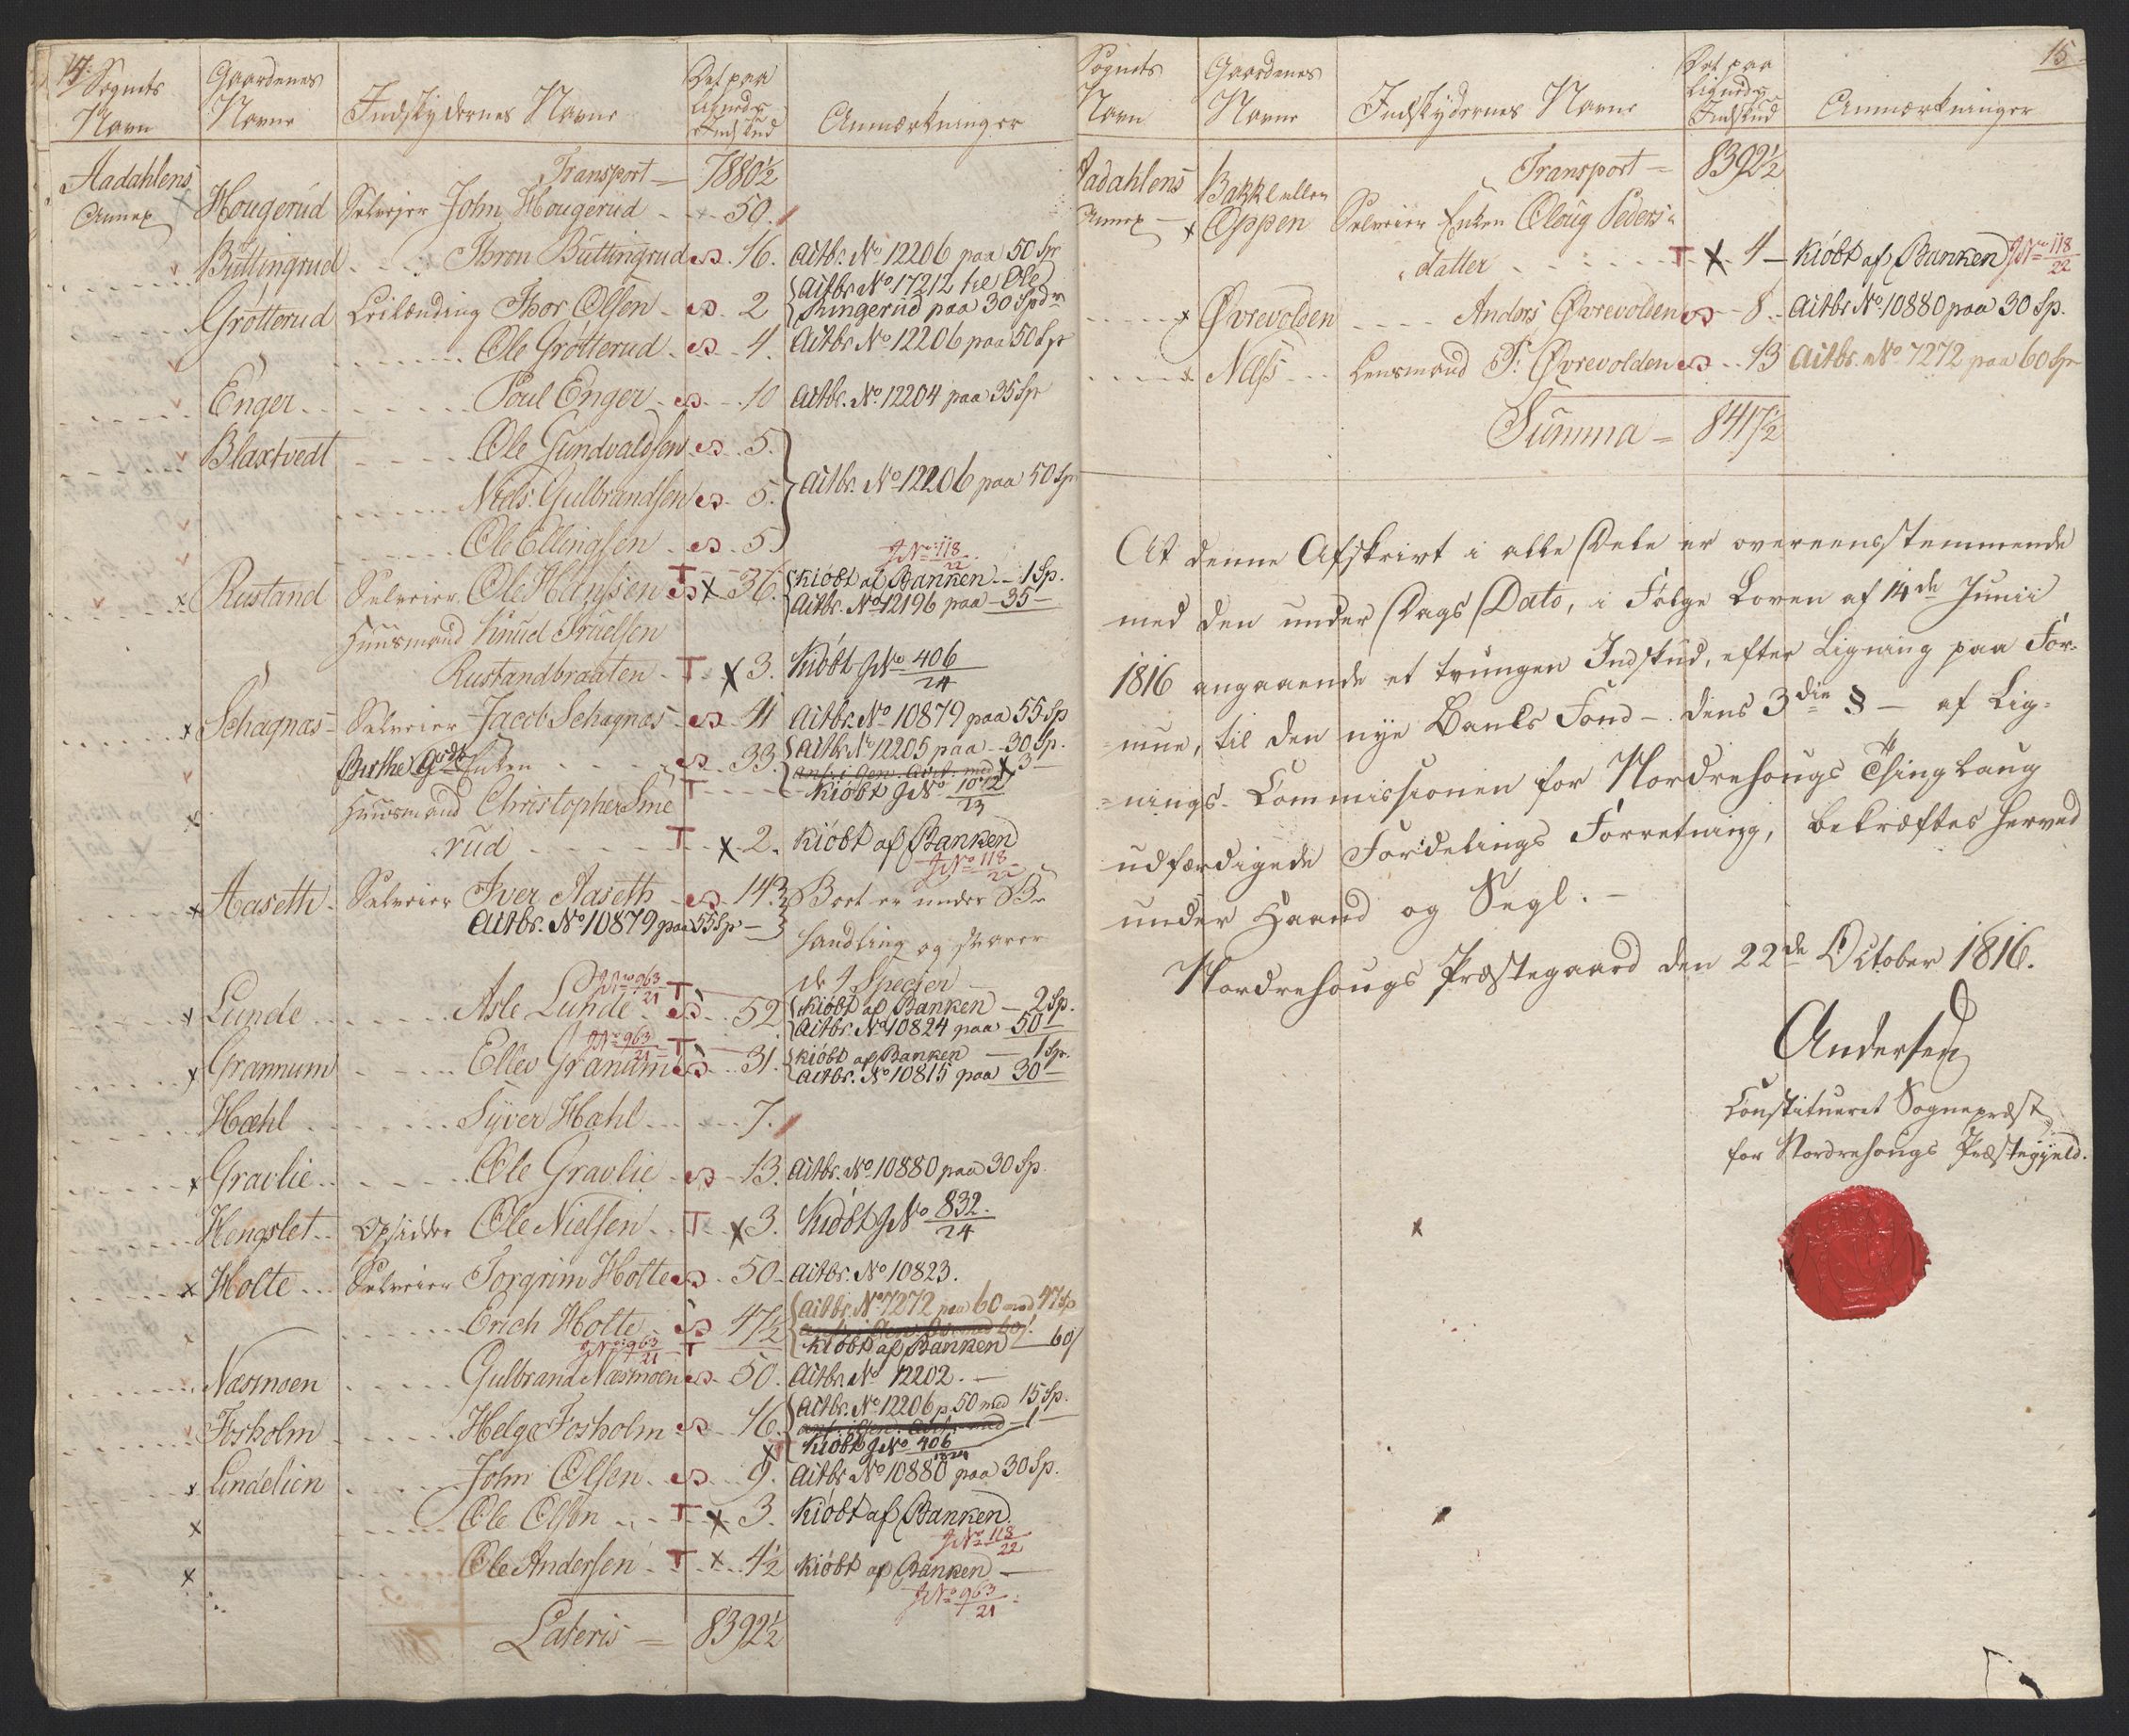 14.
Sognets Navn
Gaardenes Navne
Indskydernes Navne
Det paa Lignede Indskud
Anmærkninger
Aadahlens Annex
Transport = 7880½
Hougerud Selveier John Hougerud 50.
Buttingrud Thron Buttingrud 16. Actbr. No 12206 paa 50 Sp
Grøtterud Leilænding Thor Olsen 2 Actbr. No 17212 til Ole Ringerud paa 30 Spdr
Ole Grøtterud 4. Actbr No 12206 paa 50 Sp
Enger Poul Enger 10 Actbr. No 12204 paa 35 Sp
Blaxtvedt Ole Gundvaldsen 5.
Niels Gulbrandsen 5. Actbr. No 12206 paa 50 Sp
Ole Ellingsen 5
JNo 118/22
Rustand Selveier Ole Hansen T x 36. kiøbt af Banken 1 Sp.
Actbr. No 12196 paa 35
Huusmand Knud Truelsen
Rustandbraaten T x 3. Kiøbt JNo 406/24
Schagnæs Selveier Jacob Schagnæs 41 Actbr. No 10879 paa 55 Sp
Birthe Enken 33. Actbr No 12205 paa 30 Sp.
x 3
T kiøbt JNo 1072/23
Huusmand Christopher Sme
rud T x 2. kiøbt af Banken
JNo 118/22
Aaseth Selveier Iver Aaseth 143 Boet er under Be
Actbr. No 10879 paa 55 Sp handling og svarer
de 4 Specien
JNo 963/21 T
Lunde Asle Lunde 52 kiøbt af Banken 2 Sp.
Actbr. No 10824 paa 50
JNo 963/21 T
Granum Elles Granum 31. kiøbt af Banken 1 Sp.
Actbr. No 10815 paa 30
Hæhl Syver Hæhl 7.
Gravlie Ole Gravlie 13. Actbr. No 10880 paa 30 Sp.
Hengslet Opsidder Ole Nielsen T x 3. Kiøbt JNo 832/24
Holte Selveier Torgrim Holte 50 Actbr. No 10823.
Erich Holte 47½ Actbr. No 7272 paa 60 med 47 Sp
JNo 963/21 T kiøbt af Banken 60
Næsmoen Gulbrand Næsmoen 50. Actbr. No 12202.
Fosholm Helge Fosholm 16. Actbr. No 12206 p. 50 med 15 Sp.
1
x kiøbt JNo 406/1824
Lindelien John Olsen 9. Actbr No 10880 paa 30 Sp.
Ole Olsen T x 3. kiøbt af Banken
JNo 118/22
Ole Andersen T x 4½ kiøbt af Banken
JNo 963/21
Lateris = 8392½
15
Sognets Navn
Gaardenes Navne
Indskydernes Navne
Det paa Lignede Indskud
Anmærkninger
Aadahlens Annex
Transport = 8392½
Bakke eller
Oppen Selveier Enken Oloug Peders
datter T x 4 kiøbt af Banken JNo 118/22
Øvrevolden Anders Øvrevolden 8. Actbr No 10880 paa 30 Sp.
Næss Lensmand P: Øvrevolden 13 Actbr. No 7272 paa 60 Sp
Summa = 8417½
At denne Afskrivt i alle Dele er overeensstemmende
med den under Dags Dato, i Følge Loven af 14de Junii
1816 angaaende et tvungen Indskud, efter Ligning paa For-
mue, til den nye Banks Fond - dens 3die § - af Lig-
nings-Commissionen for Nordrehougs Thinglaug
udfærdigede Fordelings Forretning, bekræftes herved
under Haand og Segl.
Nordrehougs Præstegaard den 22de October 1816.
Andersen
Constitueret Sognepræst
for Nordrehougs Præstegjeld.